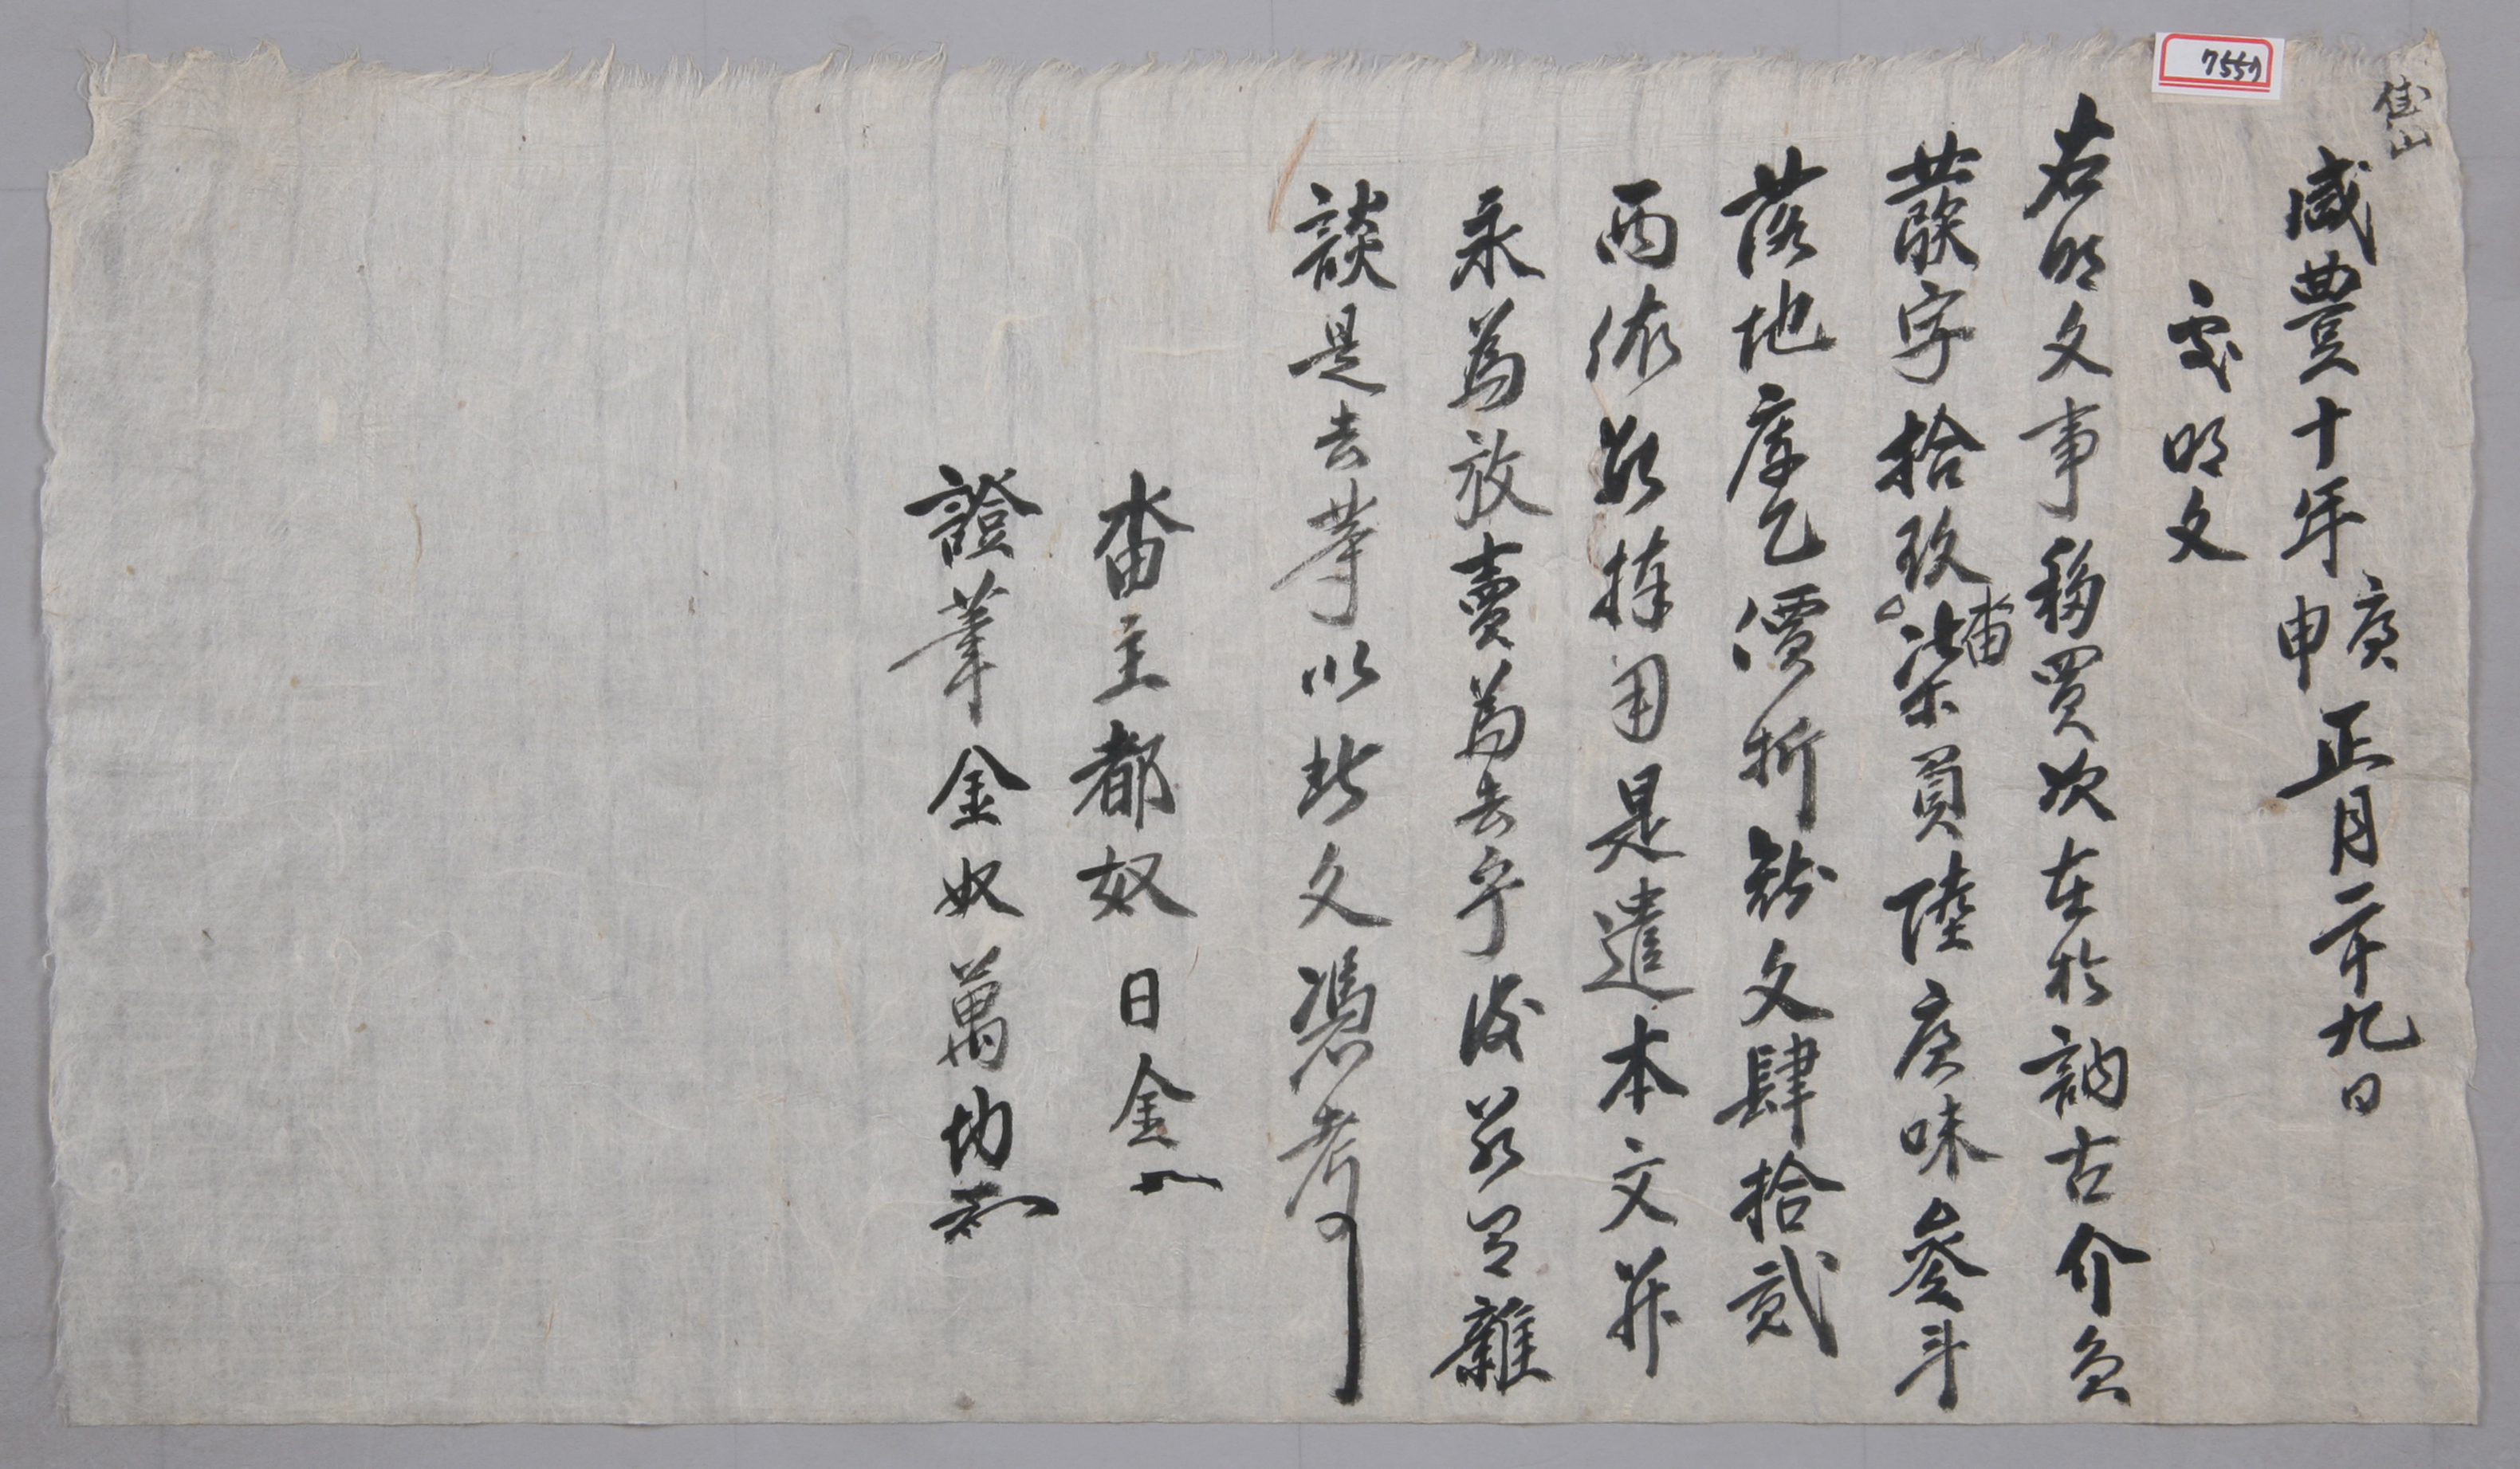 7557
岱山
咸豊十年庚申正月二十九日
處明文
右明文事移買次在於訥古介員
蕨字拾玖畓柒員陸庚味參斗
落地庫乞價折錢文肆拾貳
兩依數捧用是遣本文幷
永爲放賣爲去乎後若有雜
談是去等以此文憑考
畓主都奴日金
證筆金奴萬功